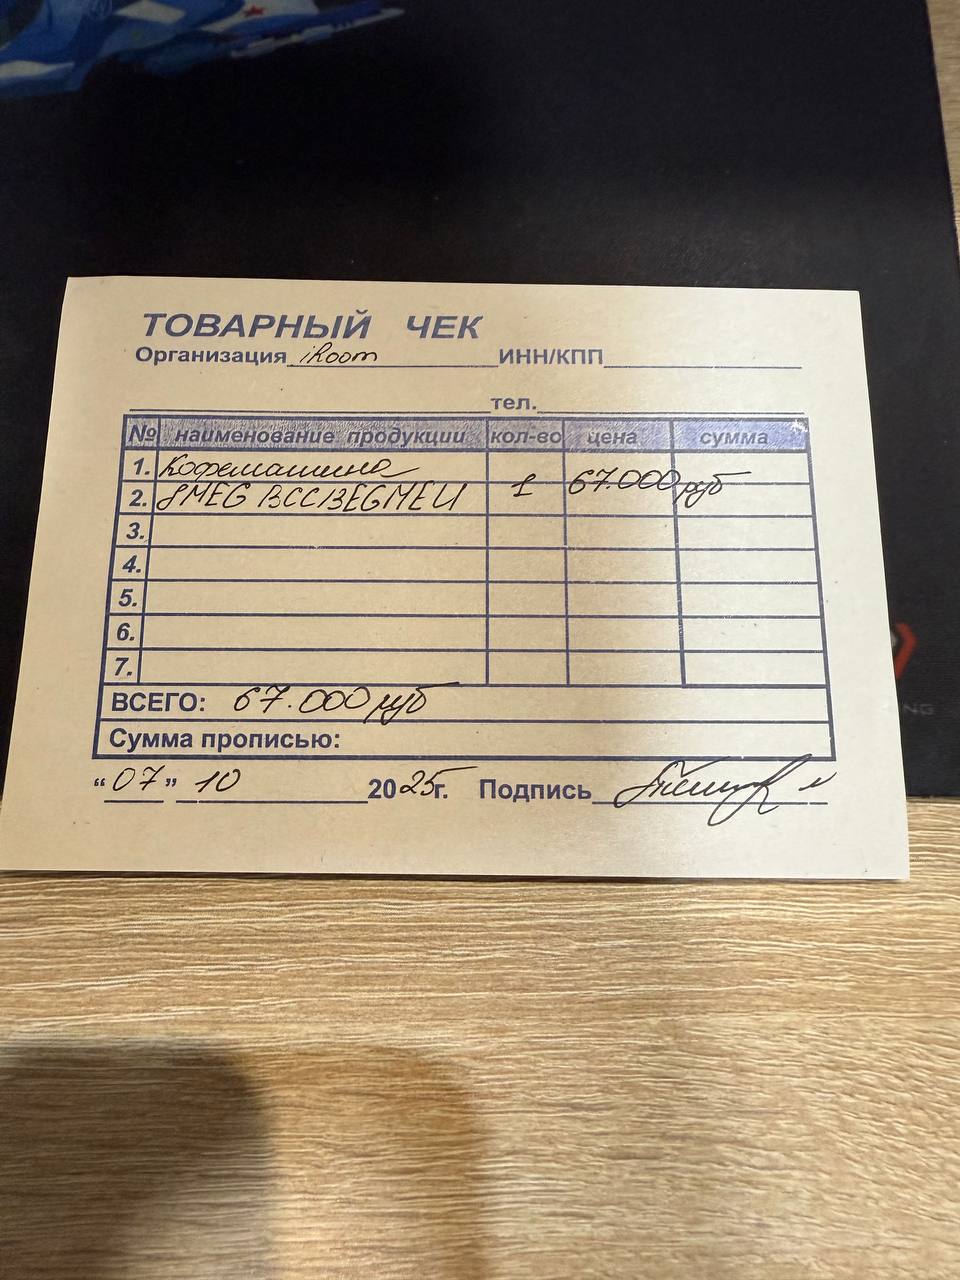 ТОВАРНЫЙ ЧЕК
Организация iRoom ИНН/КПП
тел.
№ наименование продукции кол-во цена сумма
1. Кофемашина
2. SMEG BCC13EGMEU 1 67.000 руб
3.
4.
5.
6.
7.
ВСЕГО: 67.000 руб
Сумма прописью:
“07” 10 2025г. Подпись